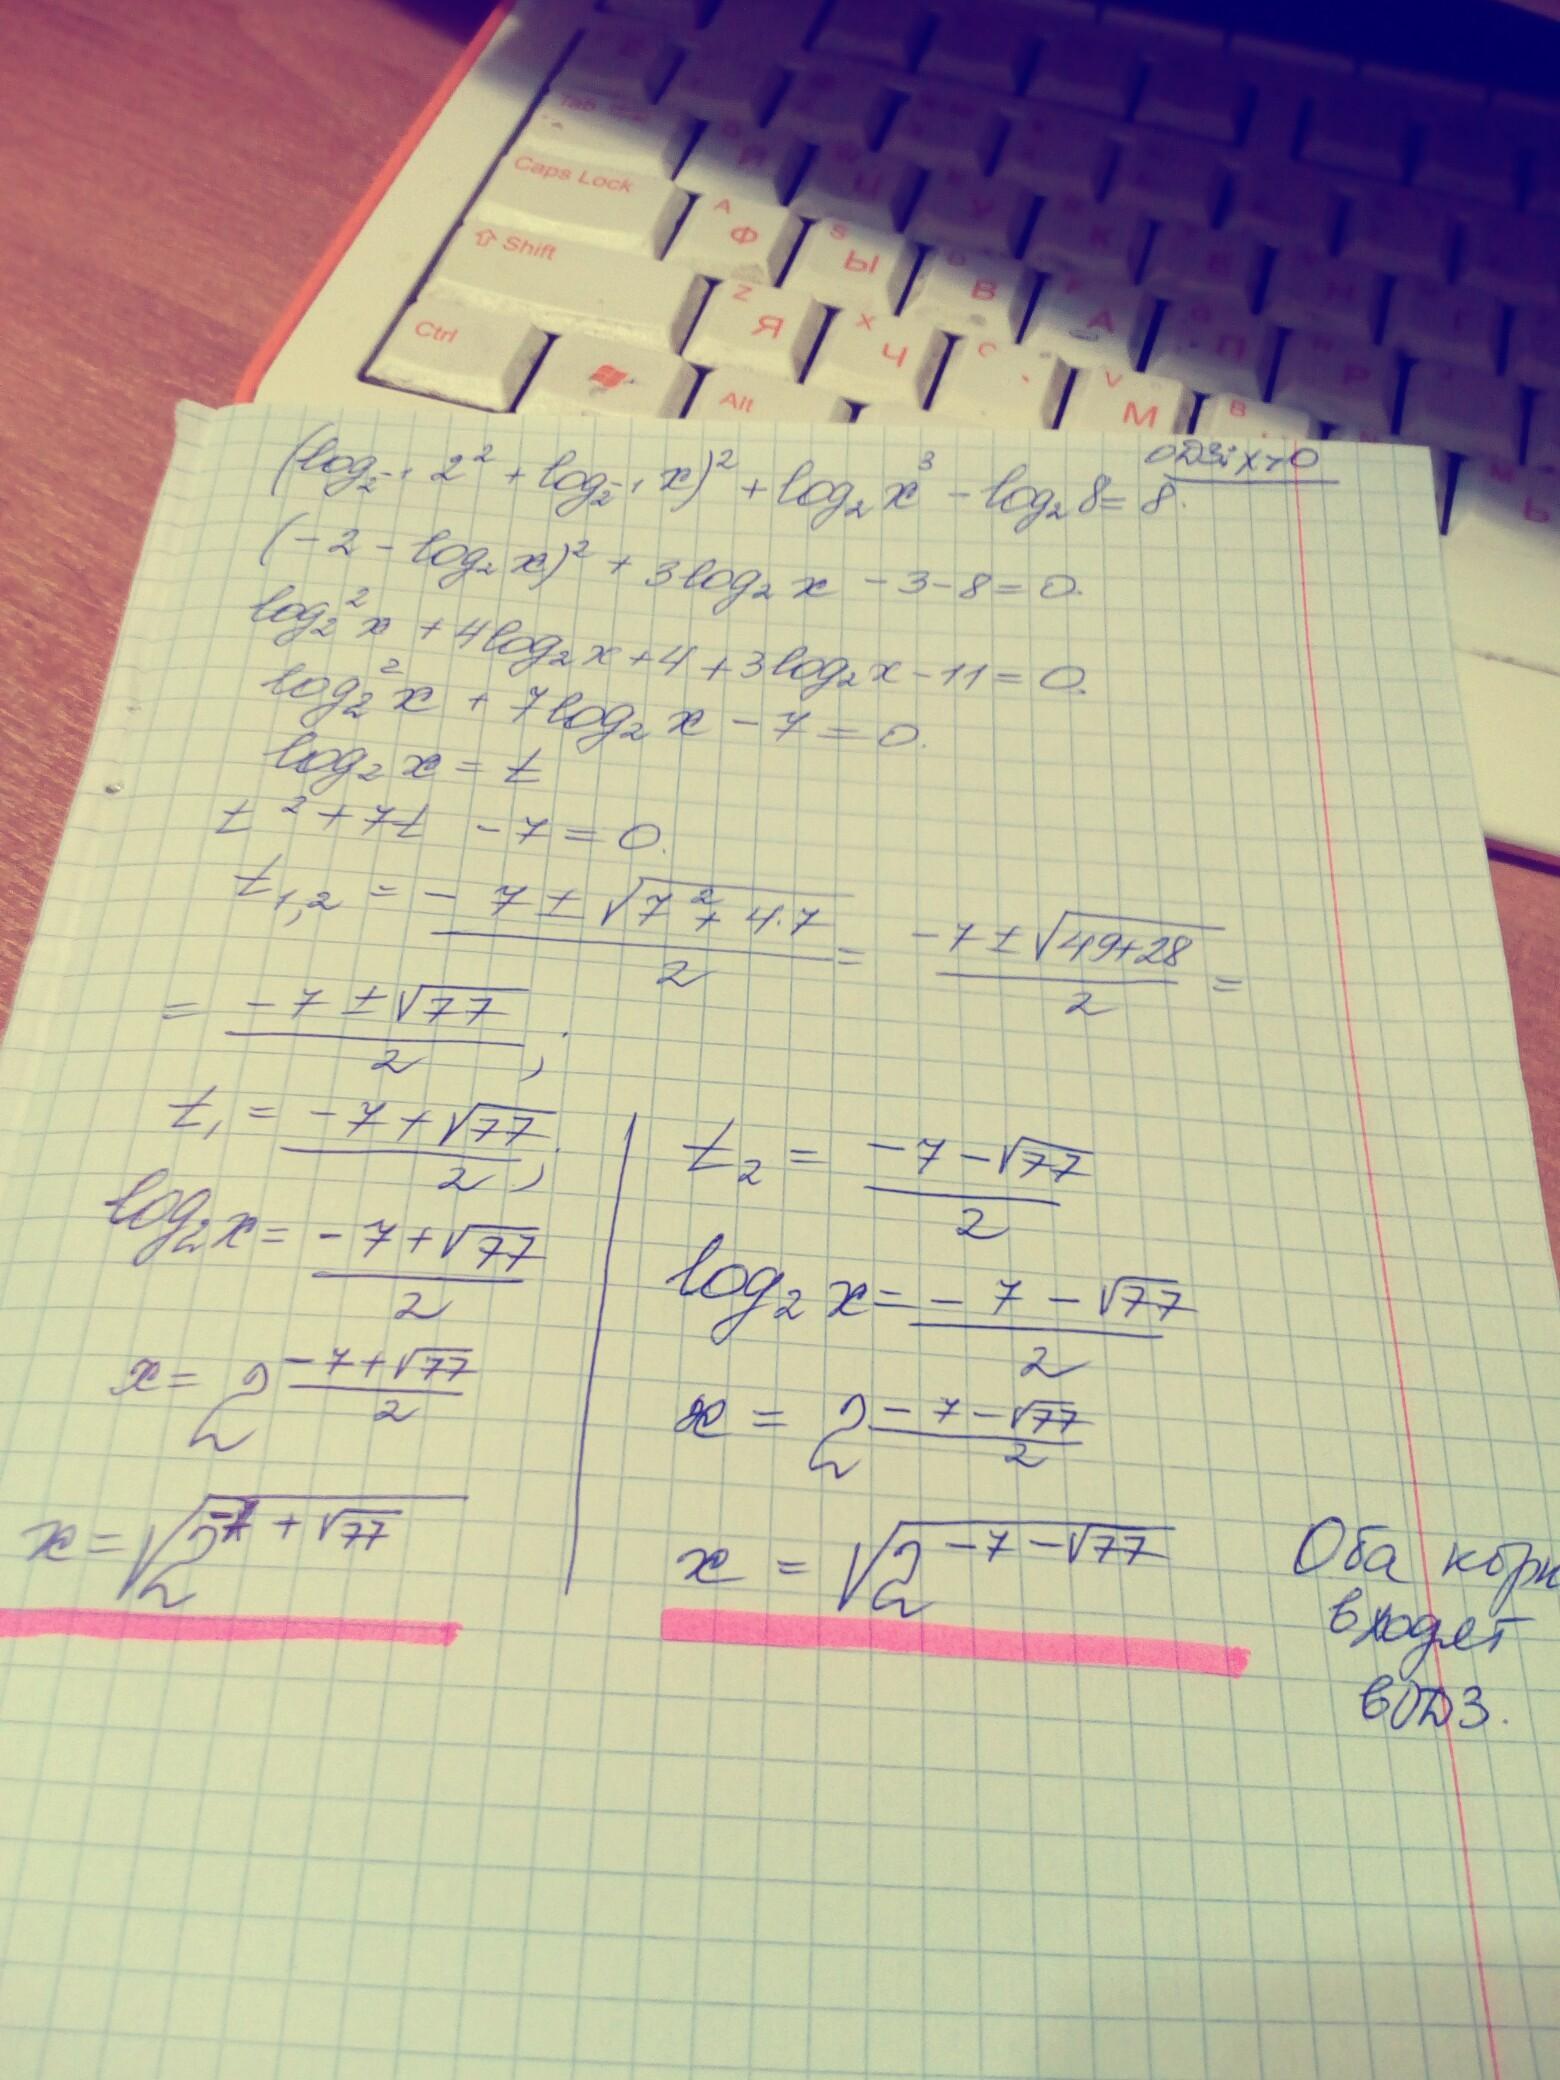 Tab
Caps Lock
A Ф S Ы В А
Shift
Z Я X Ч C V М B
Ctrl
Alt
ОДЗ: x>0
(log₂₋₁ 2² + log₂₋₁ x)² + log₂ x³ - log₂ 8 = 8.
(-2 - log₂ x)² + 3log₂ x - 3 - 8 = 0.
log₂² x + 4log₂ x + 4 + 3log₂ x - 11 = 0.
log₂² x + 7log₂ x - 7 = 0.
log₂ x = t
t² + 7t - 7 = 0.
t₁,₂ = (-7 ± √(7² + 4·7))/2 = (-7 ± √(49+28))/2 =
= (-7 ± √77)/2;
t₁ = (-7 + √77)/2;
log₂ x = (-7 + √77)/2
x = 2^((-7+√77)/2)
x = √(2^(-7+√77))
t₂ = (-7 - √77)/2
log₂ x = (-7 - √77)/2
x = 2^((-7-√77)/2)
x = √(2^(-7-√77))
Оба корн
входят
в ОДЗ.